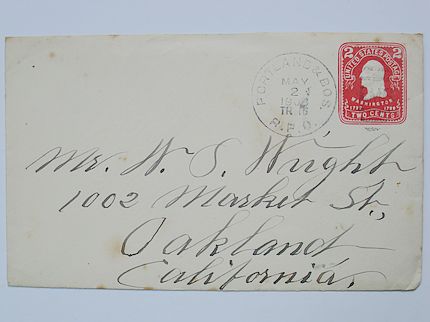 PORTLAND & BOS.
MAY
2
TR 15
R.P.O.
2 2
UNITED STATES POSTAGE
WASHINGTON
TWO CENTS
Mr. W. S. Wright
1002 Market St.,
Oakland
California.